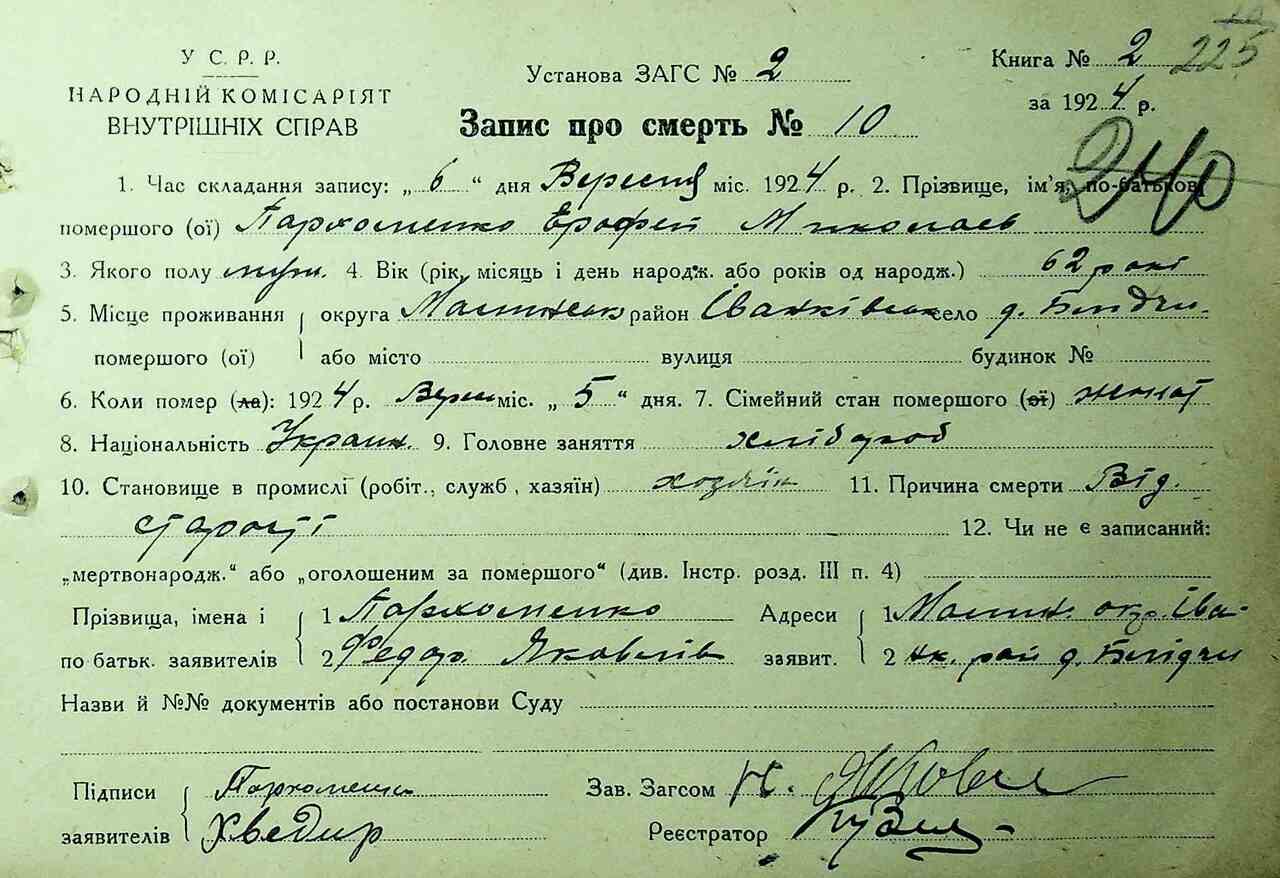 У С. Р. Р.
НАРОДНІЙ КОМІСАРІЯТ
ВНУТРІШНІХ СПРАВ
Установа ЗАГС № 2
Книга № 2 225
за 1924 р.
Запис про смерть № 10
240
1. Час складання запису: „ 6 “ дня Вересня міс. 1924 р. 2. Прізвище, ім'я, по-батькові
помершого (ої) Пархоменко Ерофей Миколаев
3. Якого полу муж. 4. Вік (рік, місяць і день народж. або років од народж.) 62 рокі
5. Місце проживання округа район Іванківськ село д.
помершого (ої) або місто вулиця будинок №
6. Коли помер (ла): 1924 р. Вересн міс. „ 5 “ дня. 7. Сімейний стан помершого (ої) женат
8. Національність Украин. 9. Головне заняття хлібороб
10. Становище в промислі (робіт., служб, хазяїн) хозяін 11. Причина смерти Від
старості 12. Чи не є записаний:
„мертвонародж.“ або „оголошеним за помершого“ (див. Інстр. розд. III п. 4)
Прізвища, імена і 1 Пархоменко Адреси 1 Малин. окр. Іва-
по батьк. заявителів 2 Федор Яковлів заявит. 2 нк. рай д.
Назви й №№ документів або постанови Суду
Підписи Пархоменко Зав. Загсом
заявителів Хведир Реєстратор